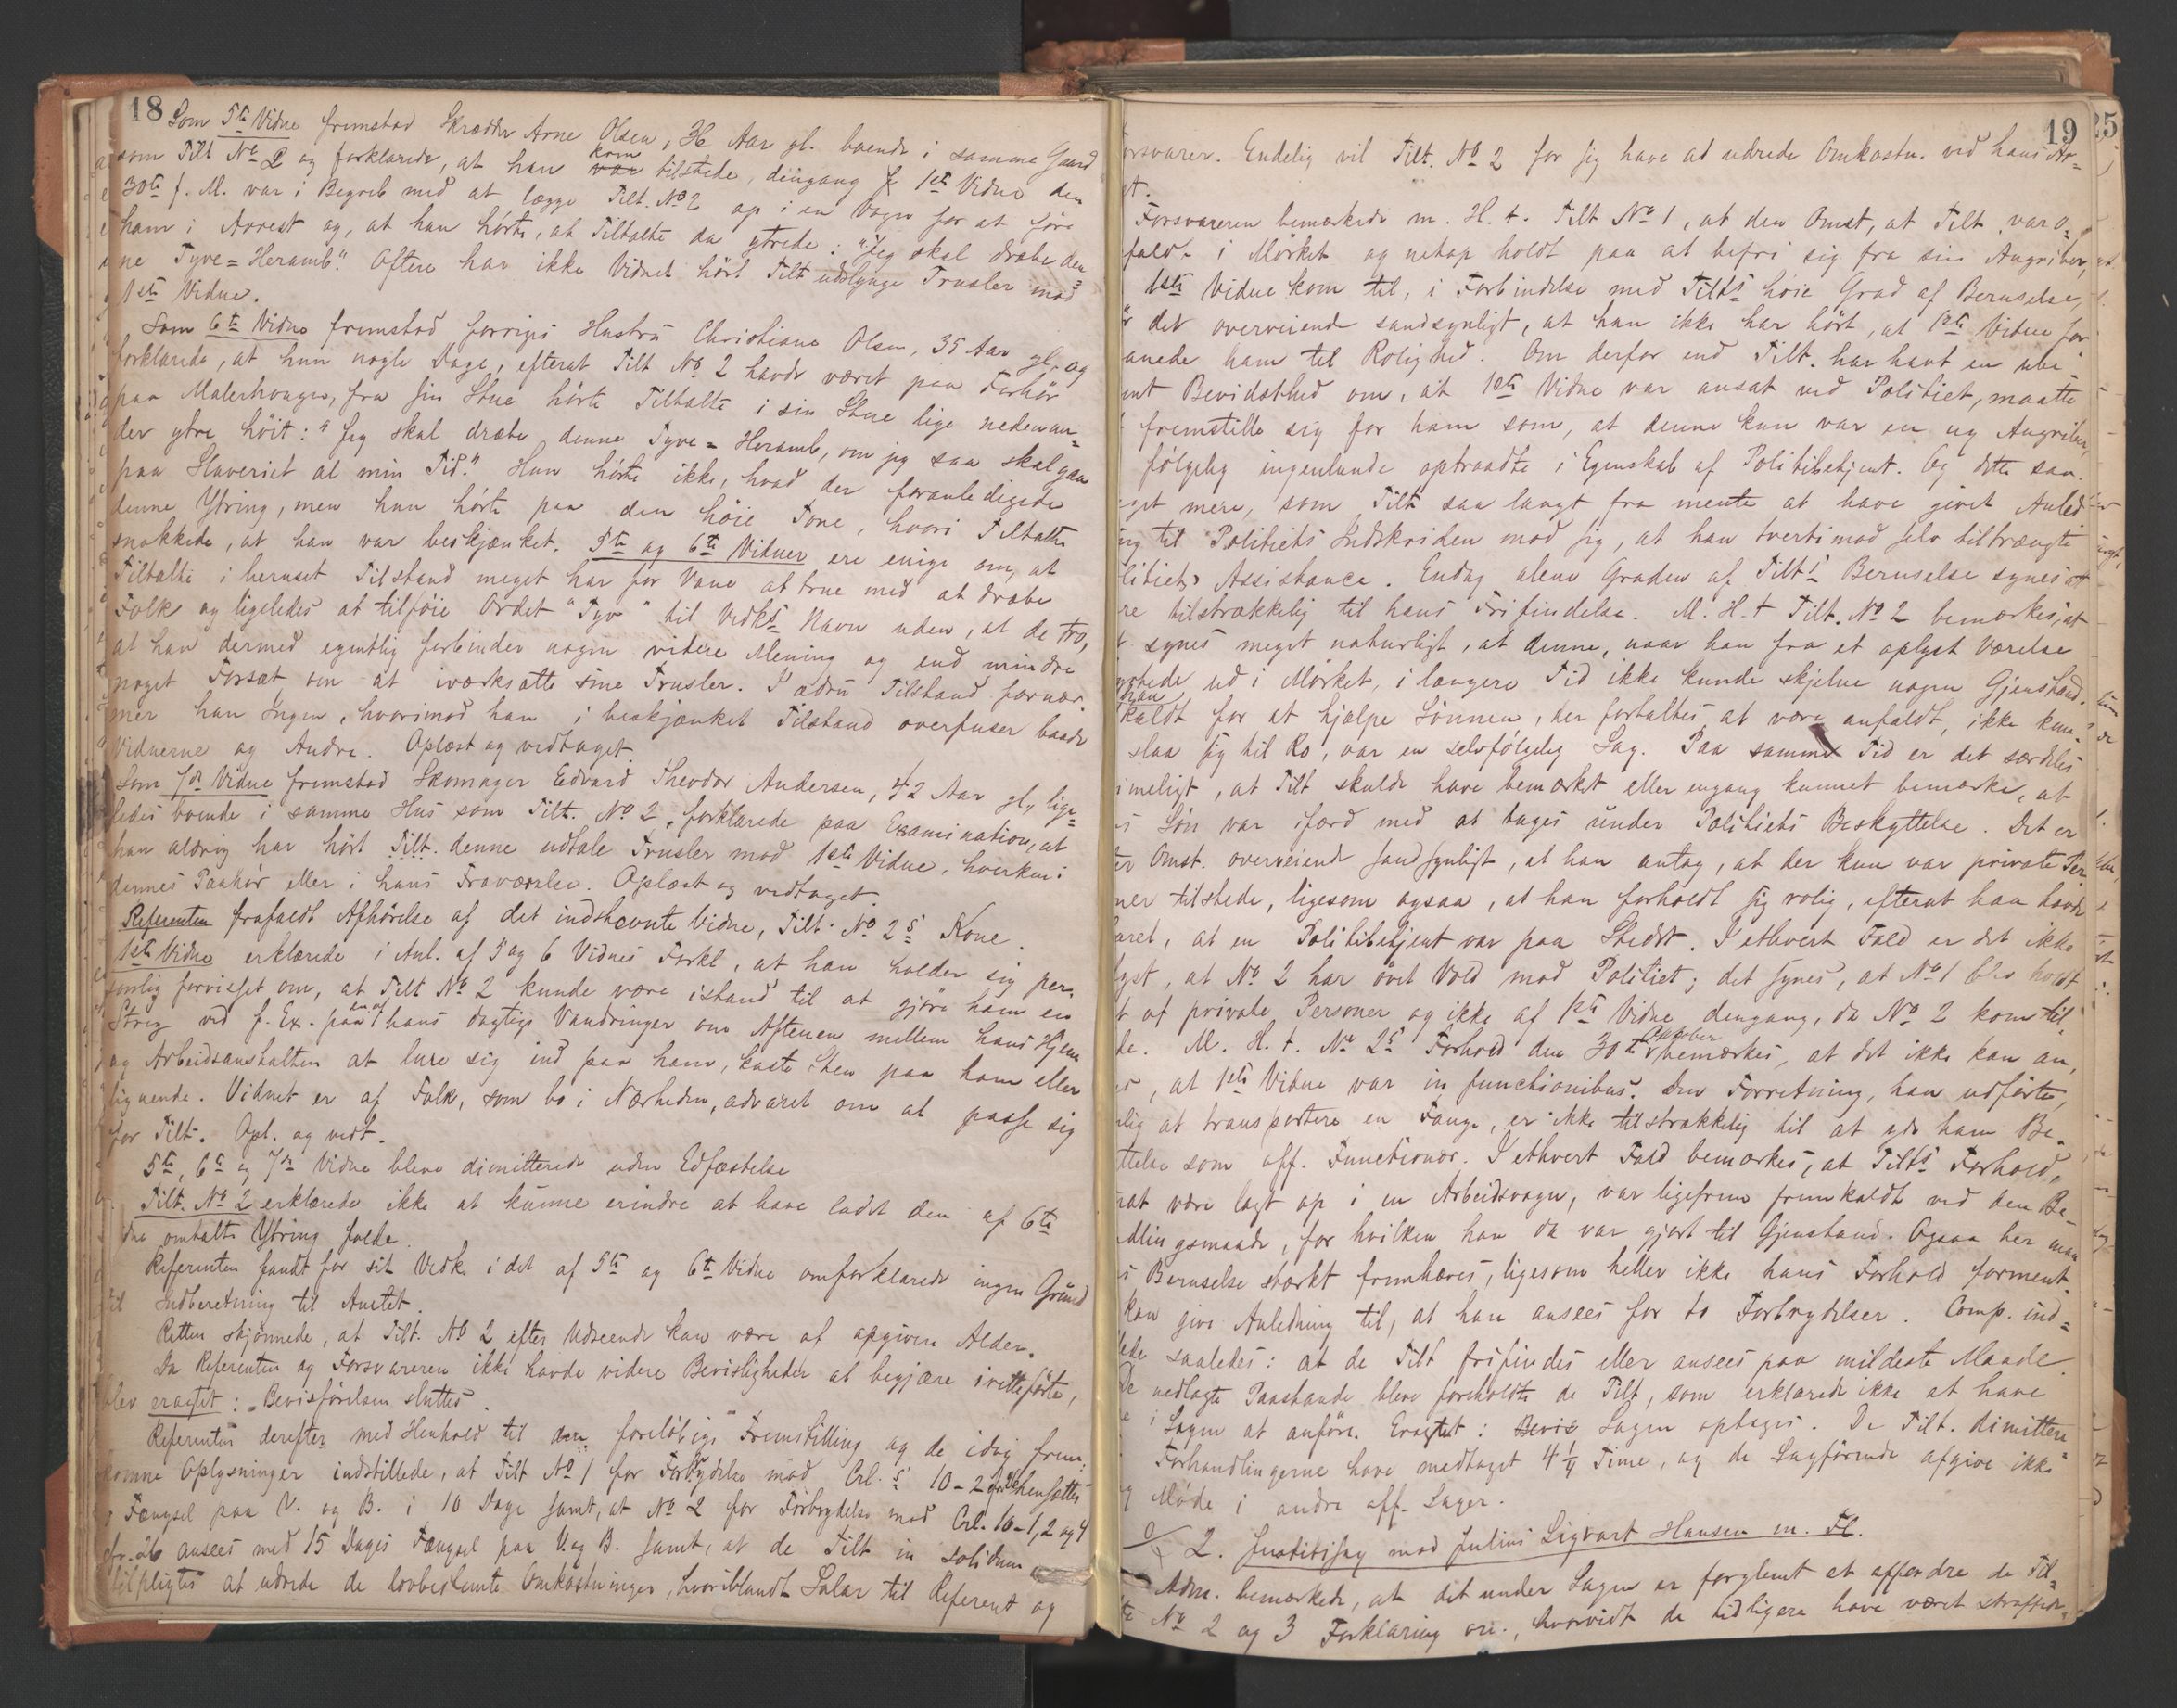 18
Som 5te Vidne fremstod Skrædder Arne Olsen, 36 Aar gl. boende i samme Gaard
som Tilt No 2 og forklarede, at han kom var tilstede, dengang f 1ste Vidne den
30te f. M. var i Begreb med at lægge Tilt. No 2 op i en Vogn for at føre
ham i Arrest og, at han hørte, at Tiltalte da ytrede: "Jeg skal dræbe den-
ne Tyve=Heramb". Oftere har ikke Vidnet hørt Tilt udslynge Trusler mod
1ste Vidne.
Som 6te Vidne fremstod forriges Hustru Christiane Olsen, 35 Aar gl. og
forklarede, at hun nogle Dage, efterat Tilt No 2 havde været paa Forhør
paa Malerhaugen, fra sin Stue hørte Tiltalte i sin Stue lige nedenun-
der ytre høit: "Jeg skal dræbe denne Tyve=Heramb, om jeg saa skal gaa
paa Slaveriet al min Tid." Hun hørte ikke, hvad der foranledigede
denne Ytring, men hun hørte paa den høie Tone, hvori Tiltalte
snakkede, at han var beskjænket. 5te og 6te Vidner ere enige om, at
Tiltalte i beruset Tilstand meget har for Vane at true med at dræbe
Folk og ligeledes at tilføie Ordet "Tyv" til Vedks Navn uden, at de tro,
at han dermed egentlig forbinder nogen videre Mening og end mindre
noget Forsæt om at iværksætte sine Trusler. I ædru Tilstand fornær-
mer han Ingen, hvorimod han i beskjænket Tilstand overfuser baade
Vidnerne og Andre. Oplæst og vedtaget.
Som 7de Vidne fremstod Skomager Edvard Theodor Andersen, 42 Aar gl, lige=
ledes boende i samme Hus som Tilt. No 2, forklarede paa Examination, at
han aldrig har hørt Tilt. denne udtale Trusler mod 1ste Vidne, hverken i
dennes Paahør eller i hans Fraværelse. Oplæst og vedtaget.
Referenten frafaldt Afhørelse af det indstevnte Vidne, Tilt. No 2s Kone.
1ste Vidne erklærede i Anl. af 5 og 6 Vidnes Forkl, at han holder sig per-
sonlig forvisset om, at Tilt No 2 kunde være istand til at gjøre ham en
Streg ved f. Ex. paa en af hans dagligs Vandringer om Aftenen mellem hans Hjem
og Arbeidsanstalten at lure sig ind paa ham, kaste Sten paa ham eller
lignende. Vidnet er af Folk, som bo i Nærheden, advaret om at passe sig
for Tilt. Opl. og vedt.
5te, 6te og 7de Vidne bleve dimitterede uden Edfæstelse
Tilt. No 2 erklærede ikke at kunne erindre at have ladet den af 6te
omhalte Ytring falde.
Referenten fandt for sit Vedk. i det af 5te og 6te Vidne omforklarede ingen Grund
til Indberetning til Amtet.
Retten skjønnede, at Tilt. No 2 efter Udseende kan være af opgiven Alder.
Da Referenten og Forsvareren ikke havde videre Bevisligheder at begjære iretteførte,
blev eragtet: Bevisførelsen sluttes.
Referenten derefter med Henhold til den foreløbige Fremstilling og de idag frem-
komne Oplysninger indstillede, at Tilt No 1 for Forbrydelse mod Crl.s 10-2 hensættes
i Fængsel paa V. og B. i 10 Dage samt, at No 2 for Forbrydelse mod Crl. 10-1, 2 og 4
cfr. 26 ansees med 15 Dages Fængsel paa V. og B. samt, at de Tilt in solidum
tilpligtes at udrede de lovbestemte Omkostninger, hvoriblandt Salar til Referent og
19
orsvarer. Endelig vil Tilt. No 2 for sig have at udrede Omkostn. ved hans Ar-
st.
Forsvareren bemærkede m. H. t. Tilt No 1, at den Omst, at Tilt var o-
fald- i Mørket og netop holdt paa at befri sig fra sin Angriber,
1ste Vidne kom til, i Forbindelse med Tilts høie Grad af Beruselse,
det overveiende sandsynligt, at han ikke har hørt, at 1ste Vidne for-
anede ham til Rolighed. Om derfor end Tilt. har havt en ube-
mt Bevidsthed om, at 1ste Vidne var ansat ved Politiet, maatte
fremstille sig for ham som, at denne kun var en ny Angriber,
følgelig ingenlunde optraadte i Egenskab af Politibetjent. Og dette saa
eget mere, som Tilt saa langt fra mente at have givet Anled-
ng til Politiets Indskriden mod sig, at han tvertimod selv tiltrængte
litiets Assistance. Endog alene Graden af Tilts Beruselse synes at
re tilstrækkelig til hans Frifindelse. M. H. t Tilt. No 2 bemærkes, at
synes meget naturligt, at denne, naar han fra et oplyst Værelse
ud i Mørket, i længere Tid ikke kunde skjelne nogen Gjenstand.
kaldt for at hjælpe Sønnen, der fortaltes at være anfaldt, ikke kun-
slaa sig til Ro, var en selvfølgelig Sag. Paa samme Tid er det særdeles
imeligt, at Tilt skulde have bemærket eller engang kunnet bemærke, at
s Søn var ifærd med at tages under Politiets Beskyttelse. Det er
er Omst. overveiende sandsynligt, at han antog, at der kun var private Per-
ner tilstede, ligesom ogsaa, at han forholdt sig rolig, efterat han havde
aret, at en Politibetjent var paa Stedet. I ethvert Fald er det ikke
yst, at No 2 har øvet Vold mod Politiet; det synes, at No 1 blev holdt
t af private Personer og ikke af 1ste Vidne dengang, da No 2 kom til
de. M. H. t. No 2s Forhold den 30te Oktober bemærkes, at det ikke kan an-
es, at 1ste Vidne var in functionibus. Den Forretning, han udførte,
nlig at transportere en Fange, er ikke tilstrækkelig til at yde ham Be-
ttelse som off. Functionær. I ethvert Fald bemærkes, at Tilts Forhold,
rat være lagt op i en Arbeidsvogn, var ligefrem fremkaldt ved den Be-
dlingsmaade, for hvilken han da var gjort til Gjenstand. Ogsaa her maa
s Beruselse stærkt fremhæves, ligesom heller ikke hans Forhold forment.
kan give Anledning til, at han ansees for to Forbrydelser. Comp. ind=
lede saaledes: at de Tilt frifindes eller ansees paa mildeste Maade
De nedlagte Paastande bleve foreholdte de Tilt, som erklærede ikke at have
e i Sagen at anføre. Eragtet: Bevis Sagen optages. De Tilt. dimittere-
Forhandlingerne have medtaget 4 1/4 Time, og de Sagførende afgive ikke
g Møde i andre off. Sager.
2. Justitssag mod Julius Sigvart Hansen m. Fl.
Adm. bemærkede, at det under Sagen er forglemt at affordre de Til-
te No 2 og 3 Forklaring om, hvorvidt de tidligere have været straffede,